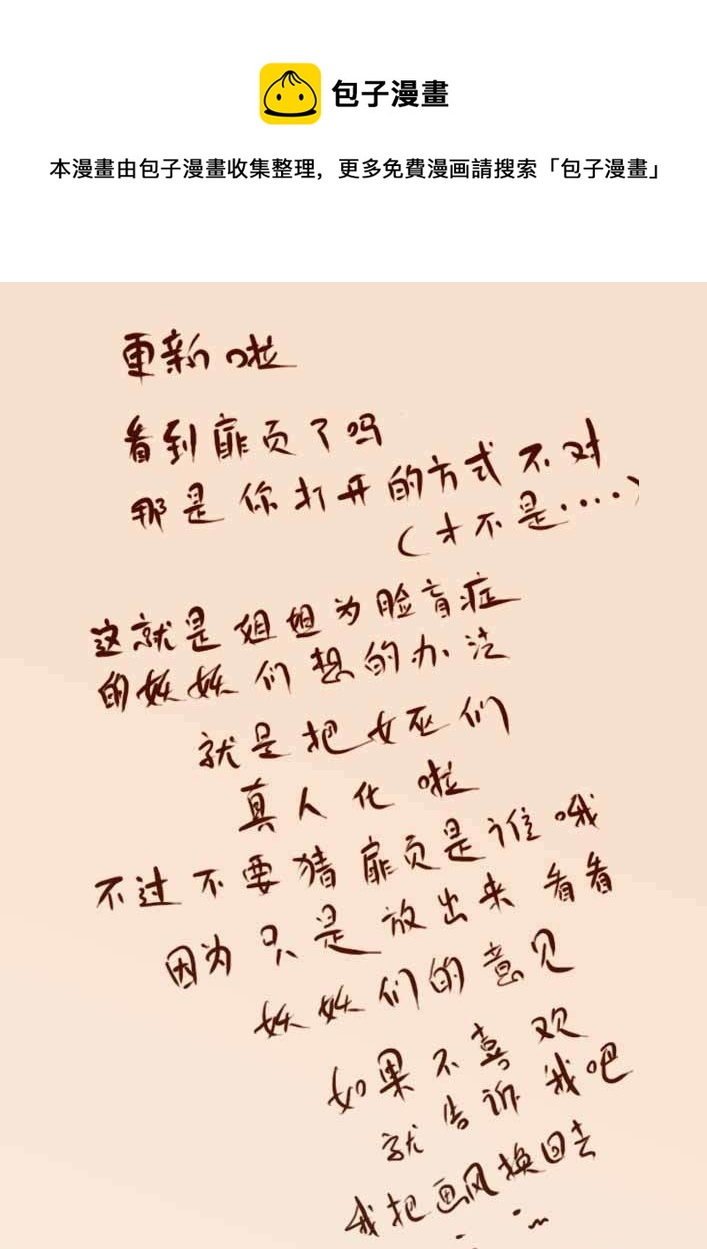 包子漫畫
本漫畫由包子漫畫收集整理，更多免費漫画請搜索「包子漫畫」
更新啦
看到扉页了吗
那是你打开的方式不对
(才不是····)
这就是姐姐为脸盲症
的妹妹们想的办法
就是把女巫们
真人化啦
不过不要猜扉页是谁哦
因为只是放出来看看
妹妹们的意见
如果不喜欢
就告诉我吧
我把画风换回去